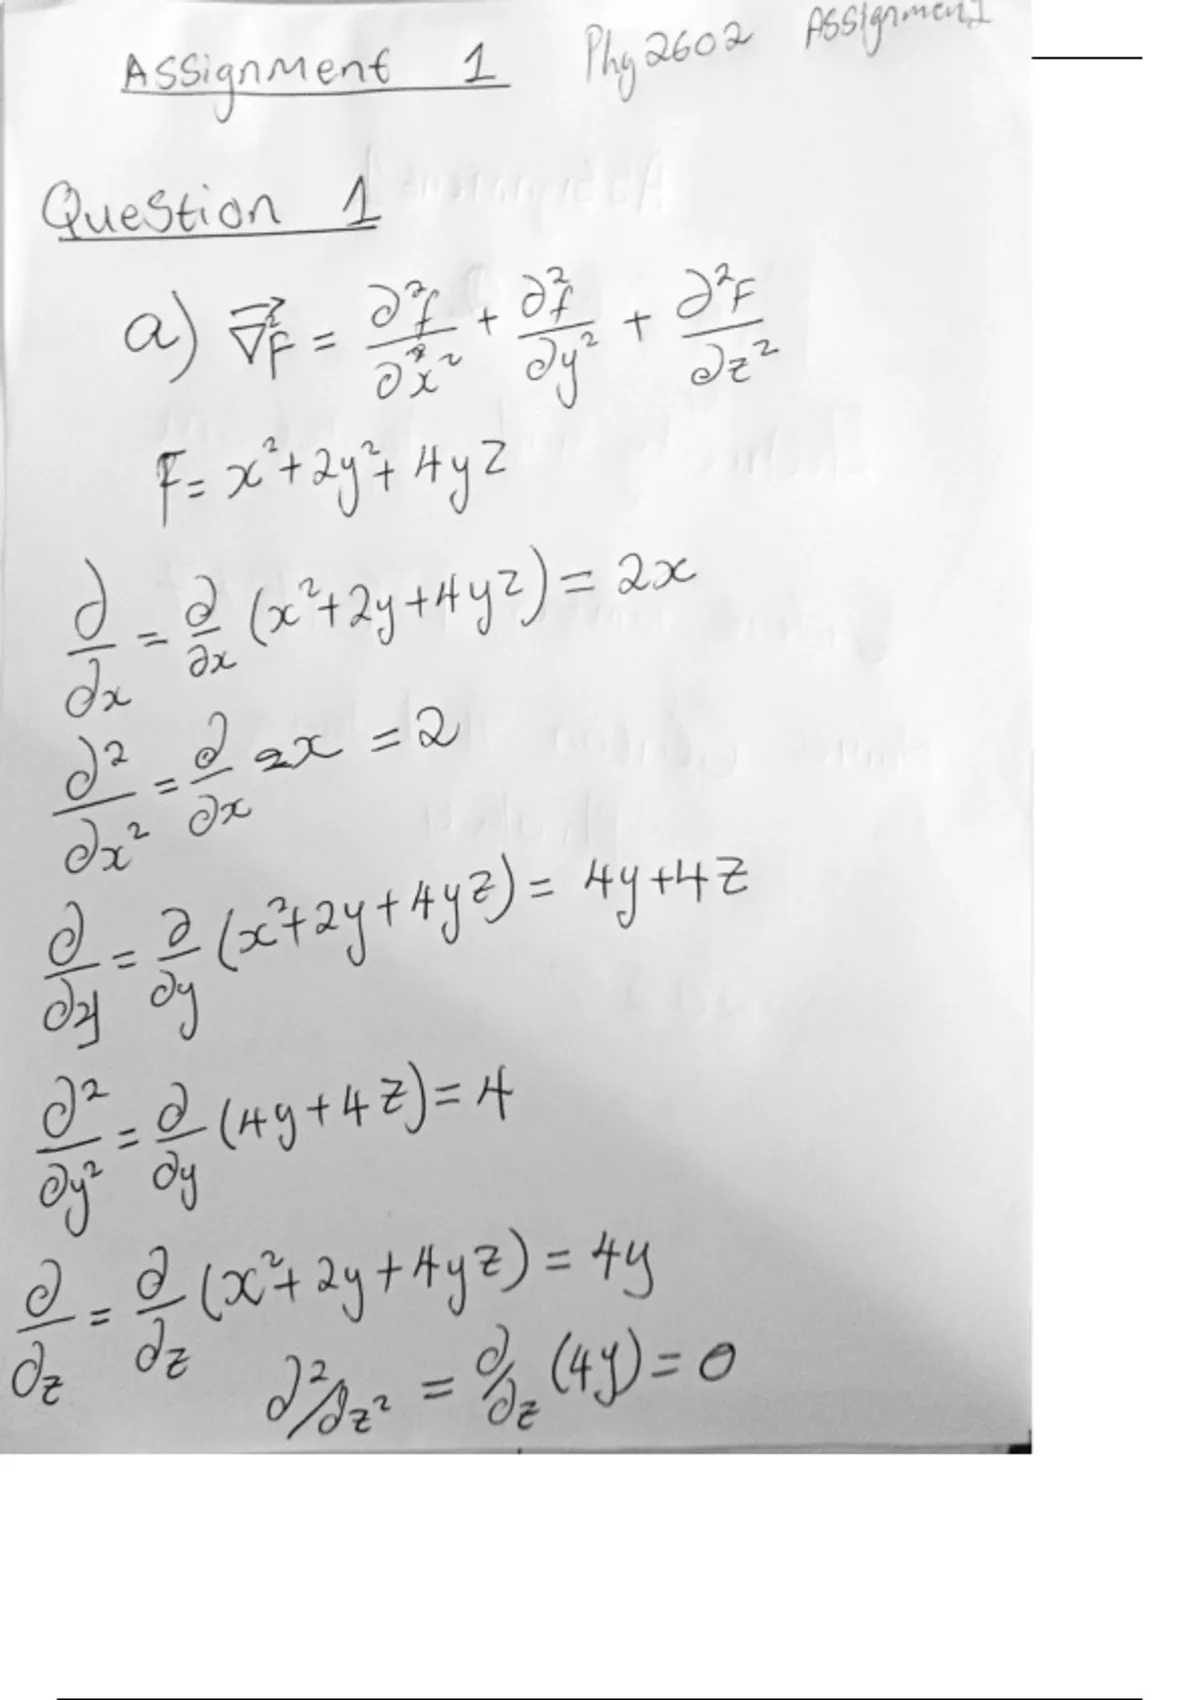 Assignment 1 Phy2602 Assignment
Question 1
a) ∇²F = ∂²f/∂x² + ∂²f/∂y² + ∂²F/∂z²
F = x² + 2y² + 4yz
∂/∂x = ∂/∂x (x² + 2y + 4yz) = 2x
∂²/∂x² = ∂/∂x 2x = 2
∂/∂y = ∂/∂y (x² + 2y + 4yz) = 4y + 4z
∂²/∂y² = ∂/∂y (4y + 4z) = 4
∂/∂z = ∂/∂z (x² + 2y + 4yz) = 4y
∂²/∂z² = ∂/∂z (4y) = 0